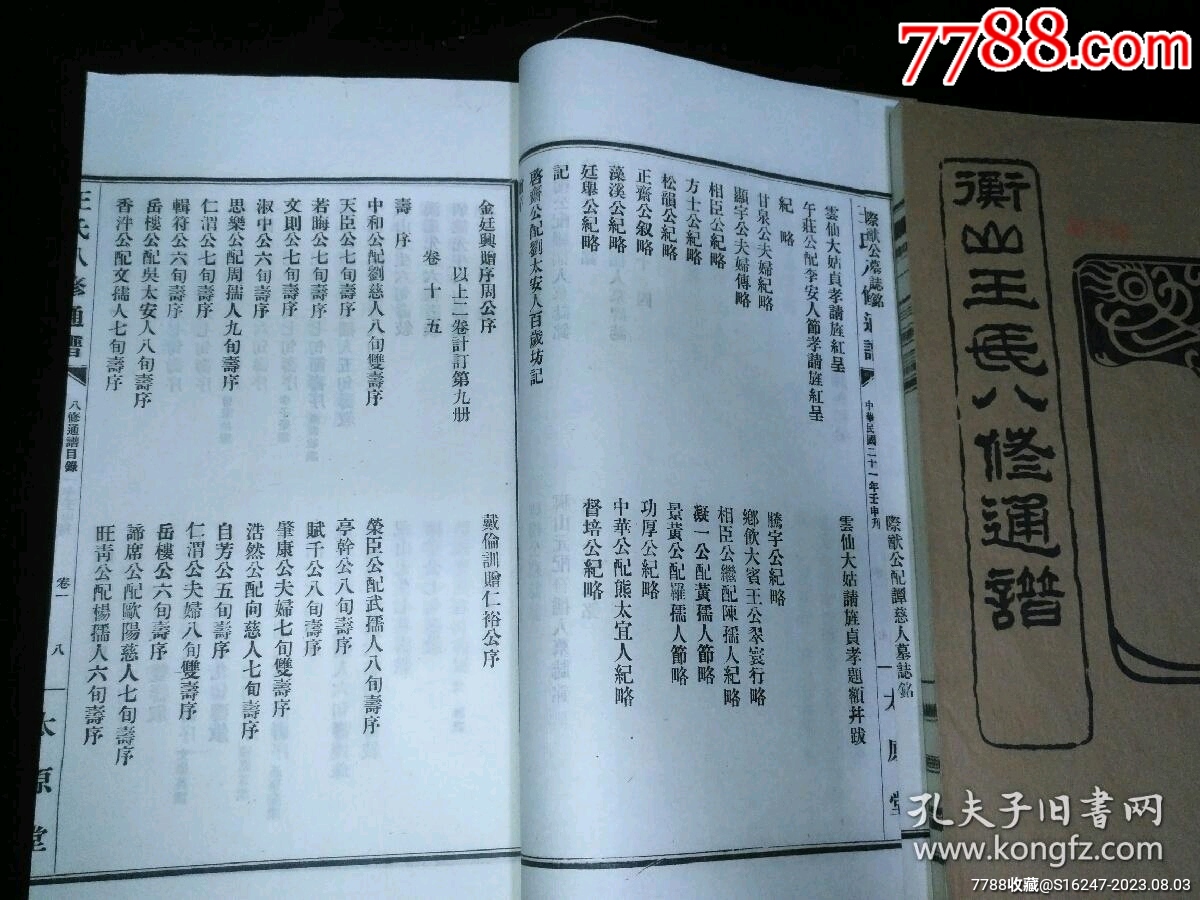 7788.com
衡山王氏八修通譜
際猷公墓誌銘
際猷公配譚慈人墓誌銘
中華民國二十一年壬申刋
太原堂
雲仙大姑貞孝請旌紅呈
雲仙大姑請旌貞孝題額幷跋
午莊公配李安人節孝請旌紅呈
紀略
甘泉公夫婦紀略
騰宇公紀略
顯宇公夫婦傳略
鄉飲大賓王公翠寰行略
相臣公紀略
相臣公繼配陳孺人紀略
方士公紀略
凝一公配黃孺人節略
松韻公紀略
景黃公配羅孺人節略
正齋公叙略
功厚公紀略
藻溪公紀略
中華公配熊太宜人紀略
廷舉公紀略
督培公紀略
記
啓齋公配劉太安人百歲坊記
金廷興贈序周公序
戴倫訓贈仁裕公序
以上二卷計訂第九册
卷十五
壽序
中和公配劉慈人八旬雙壽序
榮臣公配武孺人八旬壽序
天臣公七旬壽序
亭幹公八旬壽序
若晦公七旬壽序
賦千公八旬壽序
文則公七旬壽序
肇康公夫婦七旬雙壽序
淑中公六旬壽序
浩然公配向慈人七旬壽序
思樂公配周孺人九旬壽序
自芳公五旬壽序
仁渭公七旬壽序
仁渭公夫婦八旬雙壽序
輯符公六旬壽序
岳樓公六旬壽序
岳樓公配吳太安人八旬壽序
諦席公配歐陽慈人七旬壽序
香泮公配文孺人七旬壽序
旺青公配楊孺人六旬壽序
王氏八修通譜
八修通譜目錄
卷一
八
太原堂
孔夫子旧書网
www.kongfz.com
7788收藏@S16247-2023.08.03